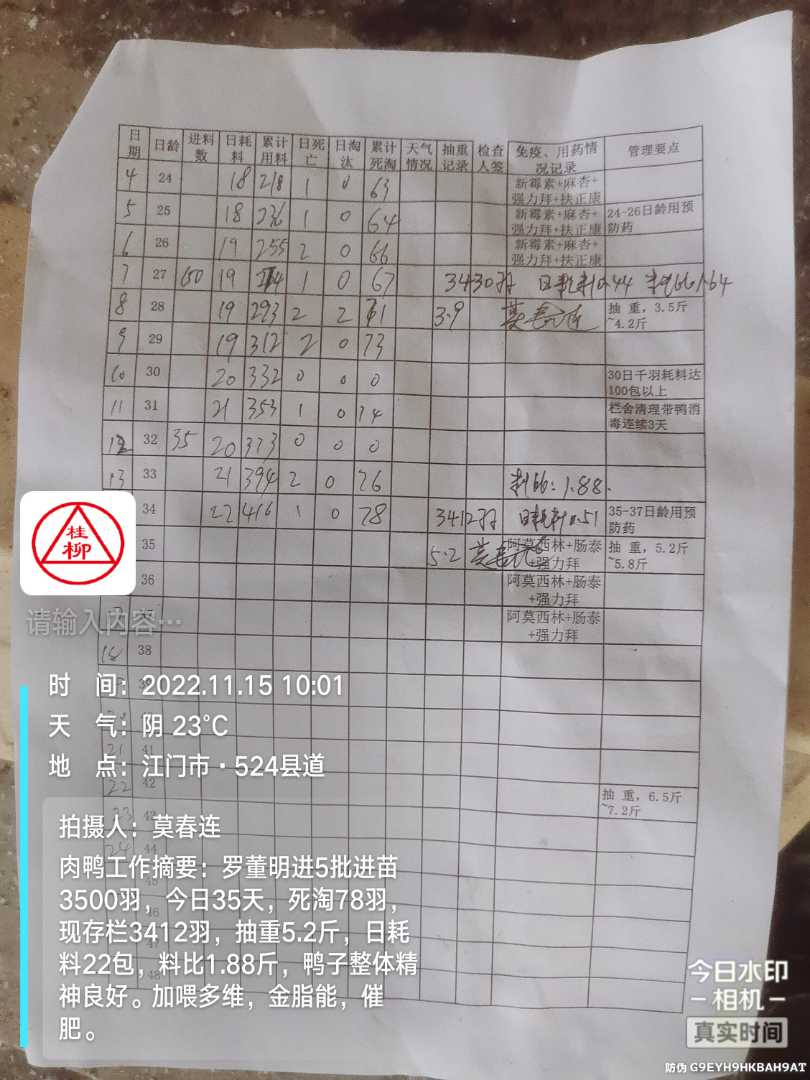 日期 日龄 进料数 日耗料 累计用料 日死亡 日淘汰 累计死淘 天气情况 抽重记录 检查人签 免疫、用药情况记录 管理要点
4 24 18 218 1 0 63 新霉素+麻杏+强力拜+扶正康
5 25 18 236 1 0 64 新霉素+麻杏+强力拜+扶正康 24-26日龄用预防药
6 26 19 255 2 0 66 新霉素+麻杏+强力拜+扶正康
7 27 19 1 0 67 3430羽 日耗料0.44
8 28 19 293 2 2 71 3.9 莫春连 抽 重，3.5斤~4.2斤
9 29 19 312 2 0 73
10 30 20 332 0 0 0 30日千羽耗料达100包以上
11 31 21 353 1 0 74 栏舍清理带鸭消毒连续3天
12 32 35 20 373 0 0 0
13 33 21 394 2 0 76 料比:1.88
34 22 416 1 0 78 3412羽 日耗料0.51 35-37日龄用预防药
35 5.2 莫春连 阿莫西林+肠泰+强力拜 抽 重，5.2斤~5.8斤
36 阿莫西林+肠泰+强力拜
阿莫西林+肠泰+强力拜
38
21 41
22 42 抽 重，6.5斤~7.2斤
23
24 44
桂柳
请输入内容…
时 间：2022.11.15 10:01
天 气：阴 23℃
地 点：江门市·524县道
拍摄人：莫春连
肉鸭工作摘要：罗董明进5批进苗
3500羽，今日35天，死淘78羽，
现存栏3412羽，抽重5.2斤，日耗
料22包，料比1.88斤，鸭子整体精
神良好。加喂多维，金脂能，催
肥。
今日水印
相机
真实时间
防伪 G9EYH9HKBAH9AT